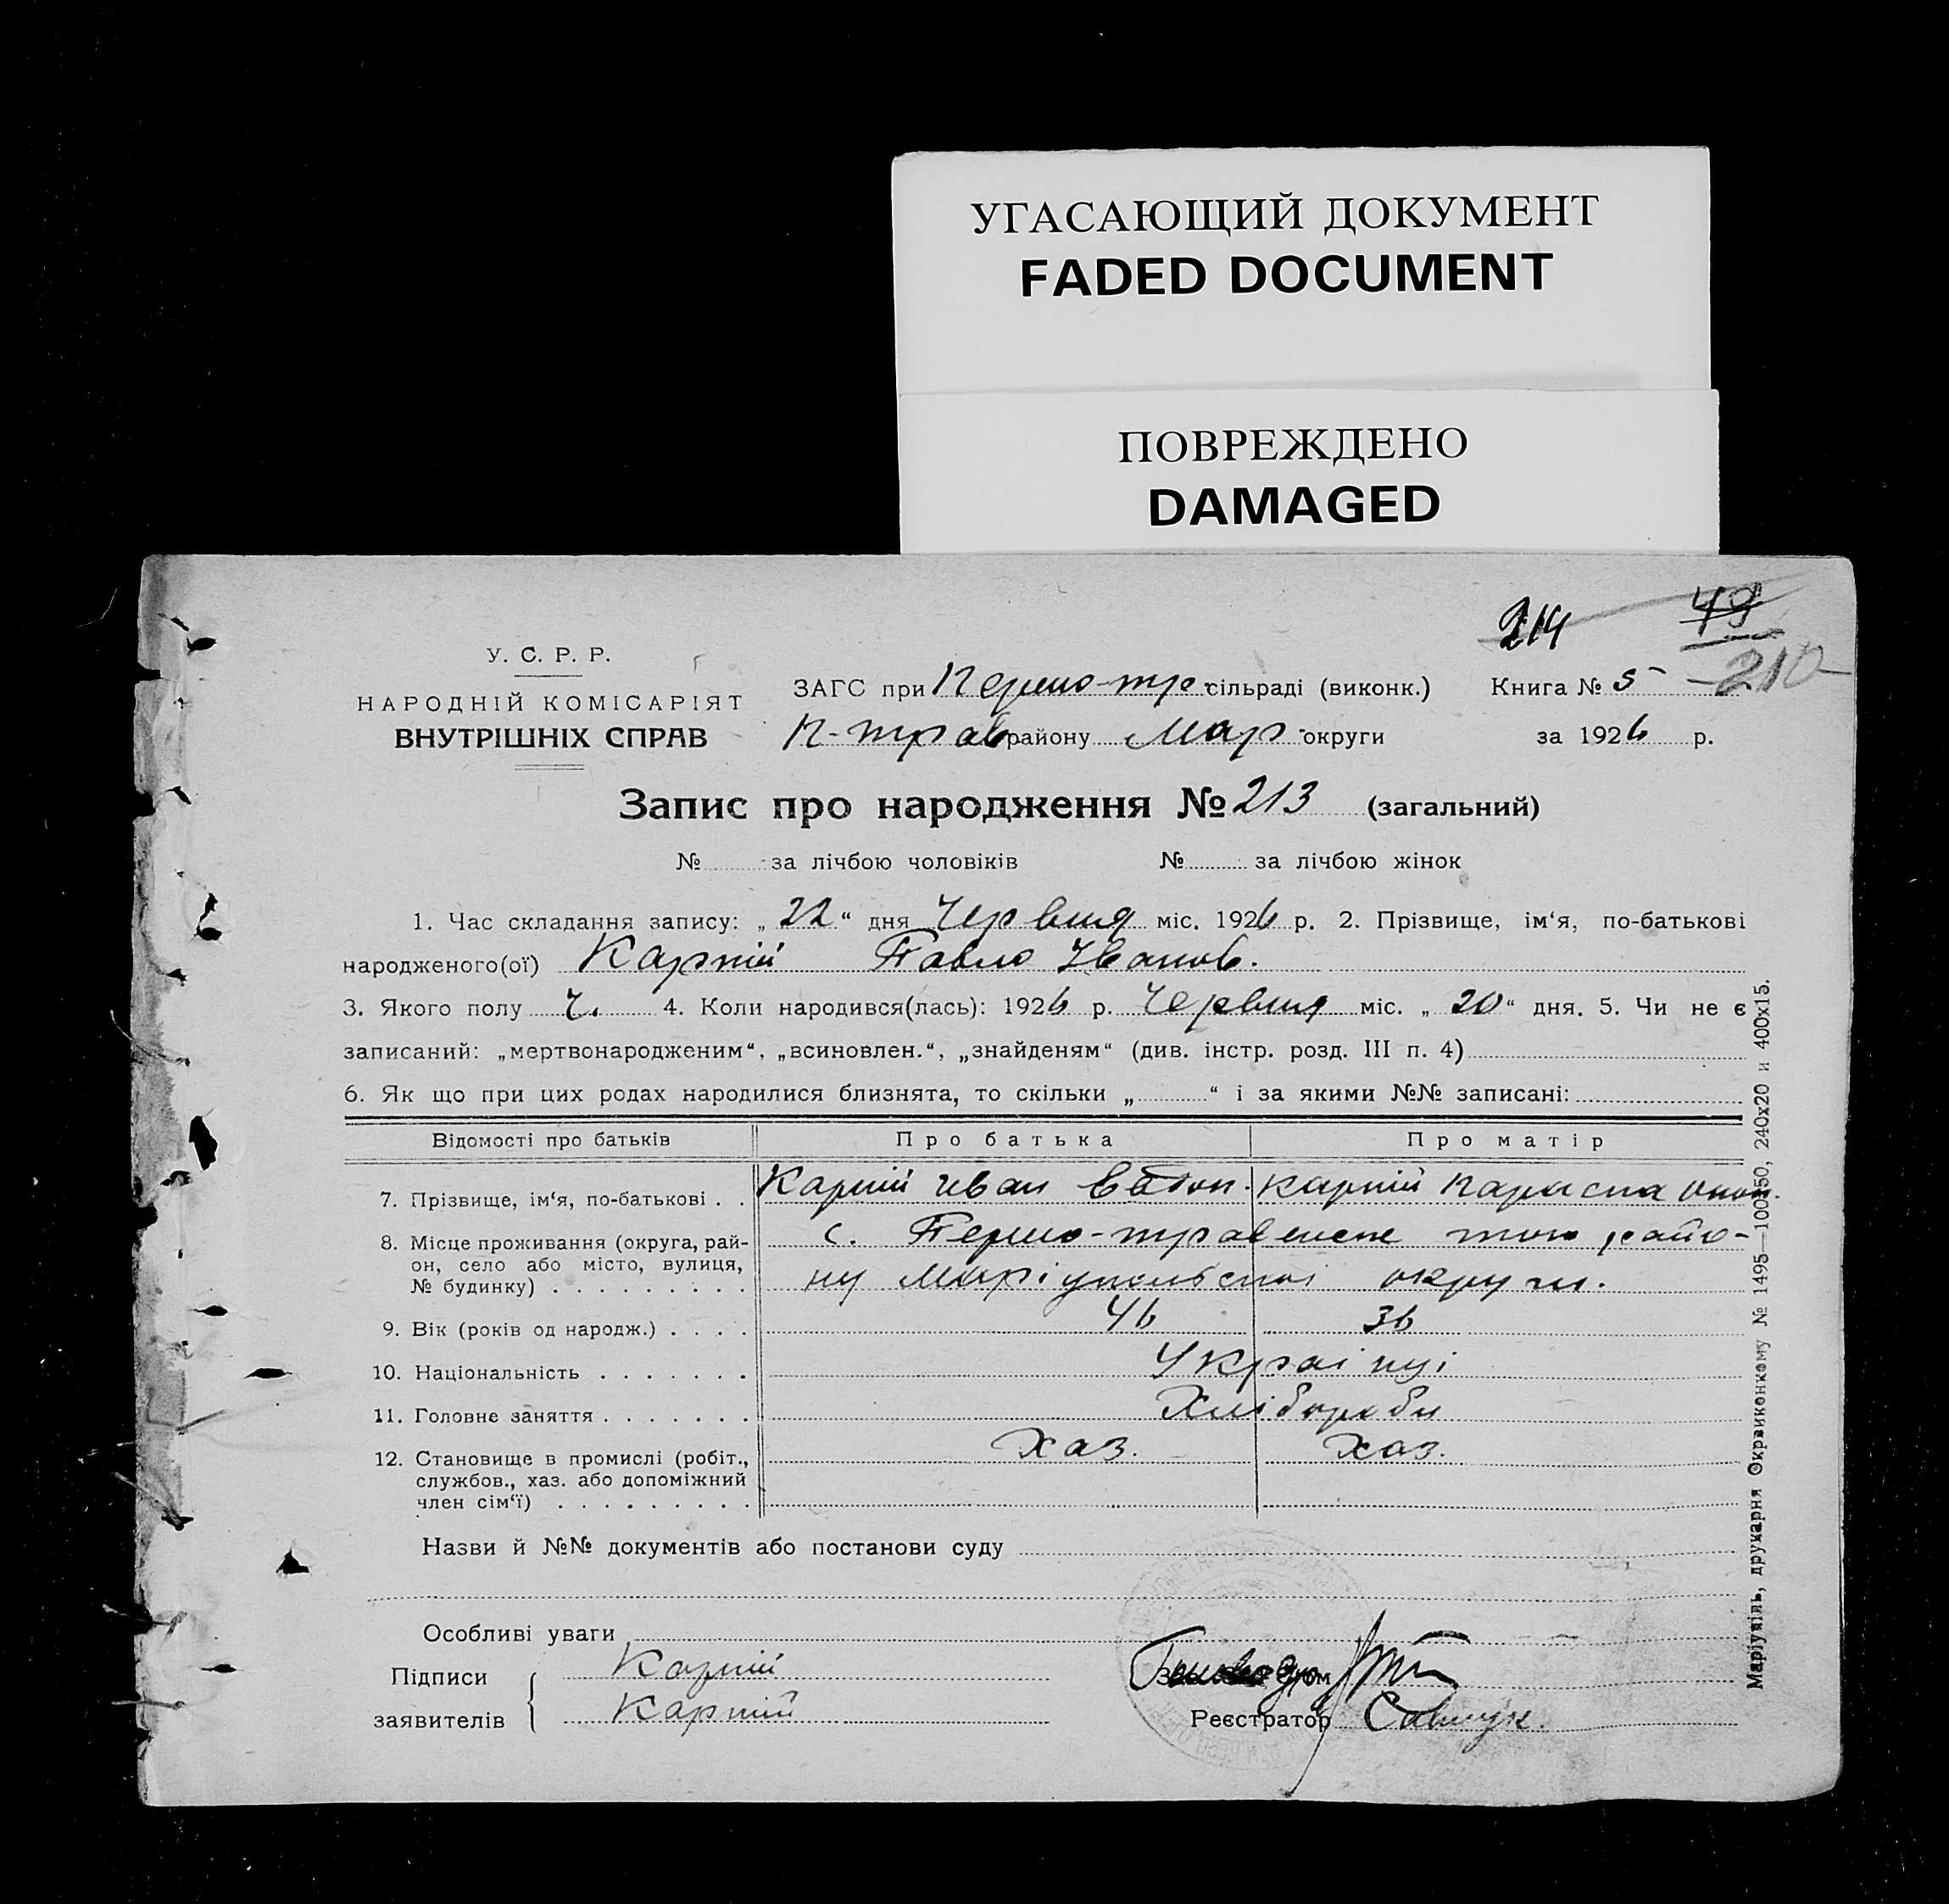 УГАСАЮЩИЙ ДОКУМЕНТ
FADED DOCUMENT
ПОВРЕЖДЕНО
DAMAGED
214 49
210
У. С. Р. Р.
НАРОДНІЙ КОМІСАРІЯТ
ВНУТРІШНІХ СПРАВ
ЗАГС при Першо-тр. сільраді (виконк.) Книга № 5
П-трав району Мар. округи за 1926 р.
Запис про народження № 213 (загальний)
№ за лічбою чоловіків № за лічбою жінок
1. Час складання запису: „22“ дня Червня міс. 1926 р. 2. Прізвище, ім‘я, по-батькові
народженого(ої) Карпій Павло Іванов.
3. Якого полу ч. 4. Коли народився(лась): 1926 р. Червня міс. „20“ дня. 5. Чи не є
записаний: „мертвонародженим“, „всиновлен.“, „знайденям“ (див. інстр. розд. III п. 4)
6. Як що при цих родах народилися близнята, то скільки „ “ і за якими №№ записані:
Відомості про батьків Про батька Про матір
7. Прізвище, ім‘я, по-батькові . . Карпій Иван Карпій Параска
8. Місце проживання (округа, рай-
он, село або місто, вулиця,
№ будинку) . . . . . . . . .
с. Першо-травневе того райо-
ну Маріупольської округи.
9. Вік (років од народж.) . . . . 46 36
10. Національність . . . . . . . Українці
11. Головне заняття . . . . . . . Хлібороби
12. Становище в промислі (робіт., Хаз. Хаз.
службов., хаз. або допоміжний
член сім‘ї) . . . . . . . . .
Назви й №№ документів або постанови суду
Особливі уваги
Підписи Карпій
заявителів Карпій
Реєстратор Савчук.
Маріупіль, друкарня Окрвиконкому № 1495—100150, 240x20 и 400x15.